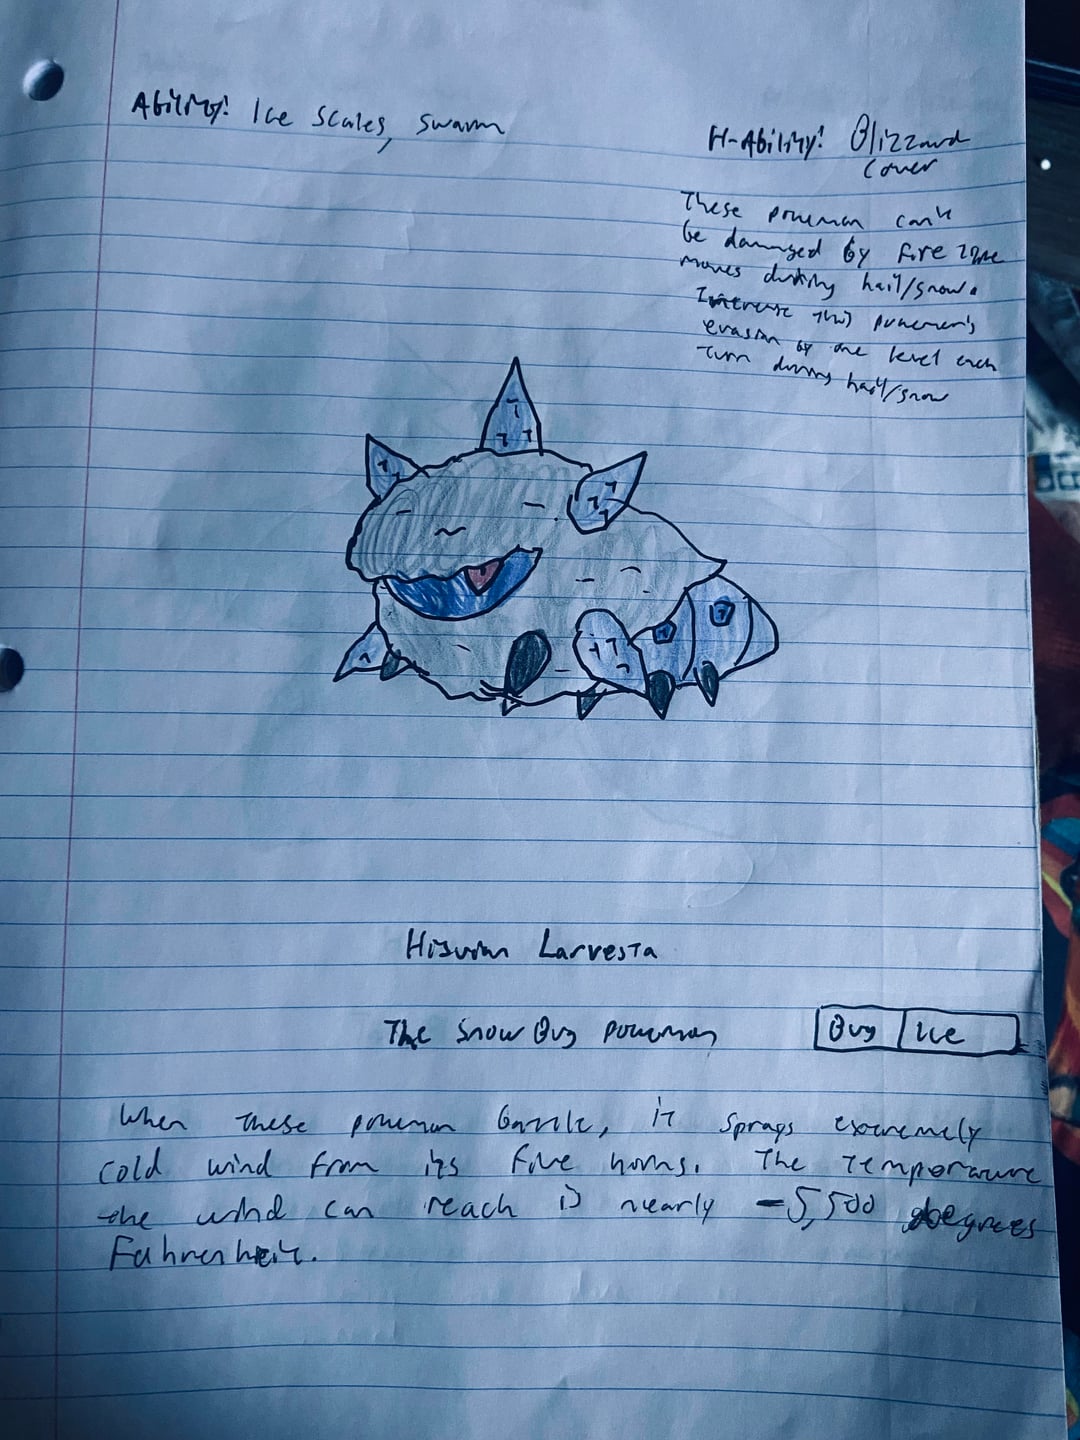 Ability: Ice Scales, Swarm
H-Ability: Blizzard
Cover
These pokemon can't
be damaged by fire type
moves during hail/snow.
Increase this pokemon's
evasion by one level each
turn during hail/snow
Hisuian Larvesta
The Snow Bug Pokemon
Bug Ice
When these pokemon battle, it sprays extremely
cold wind from its five horns. The temperature
the wind can reach is nearly -5,500 degrees
Fahrenheit.